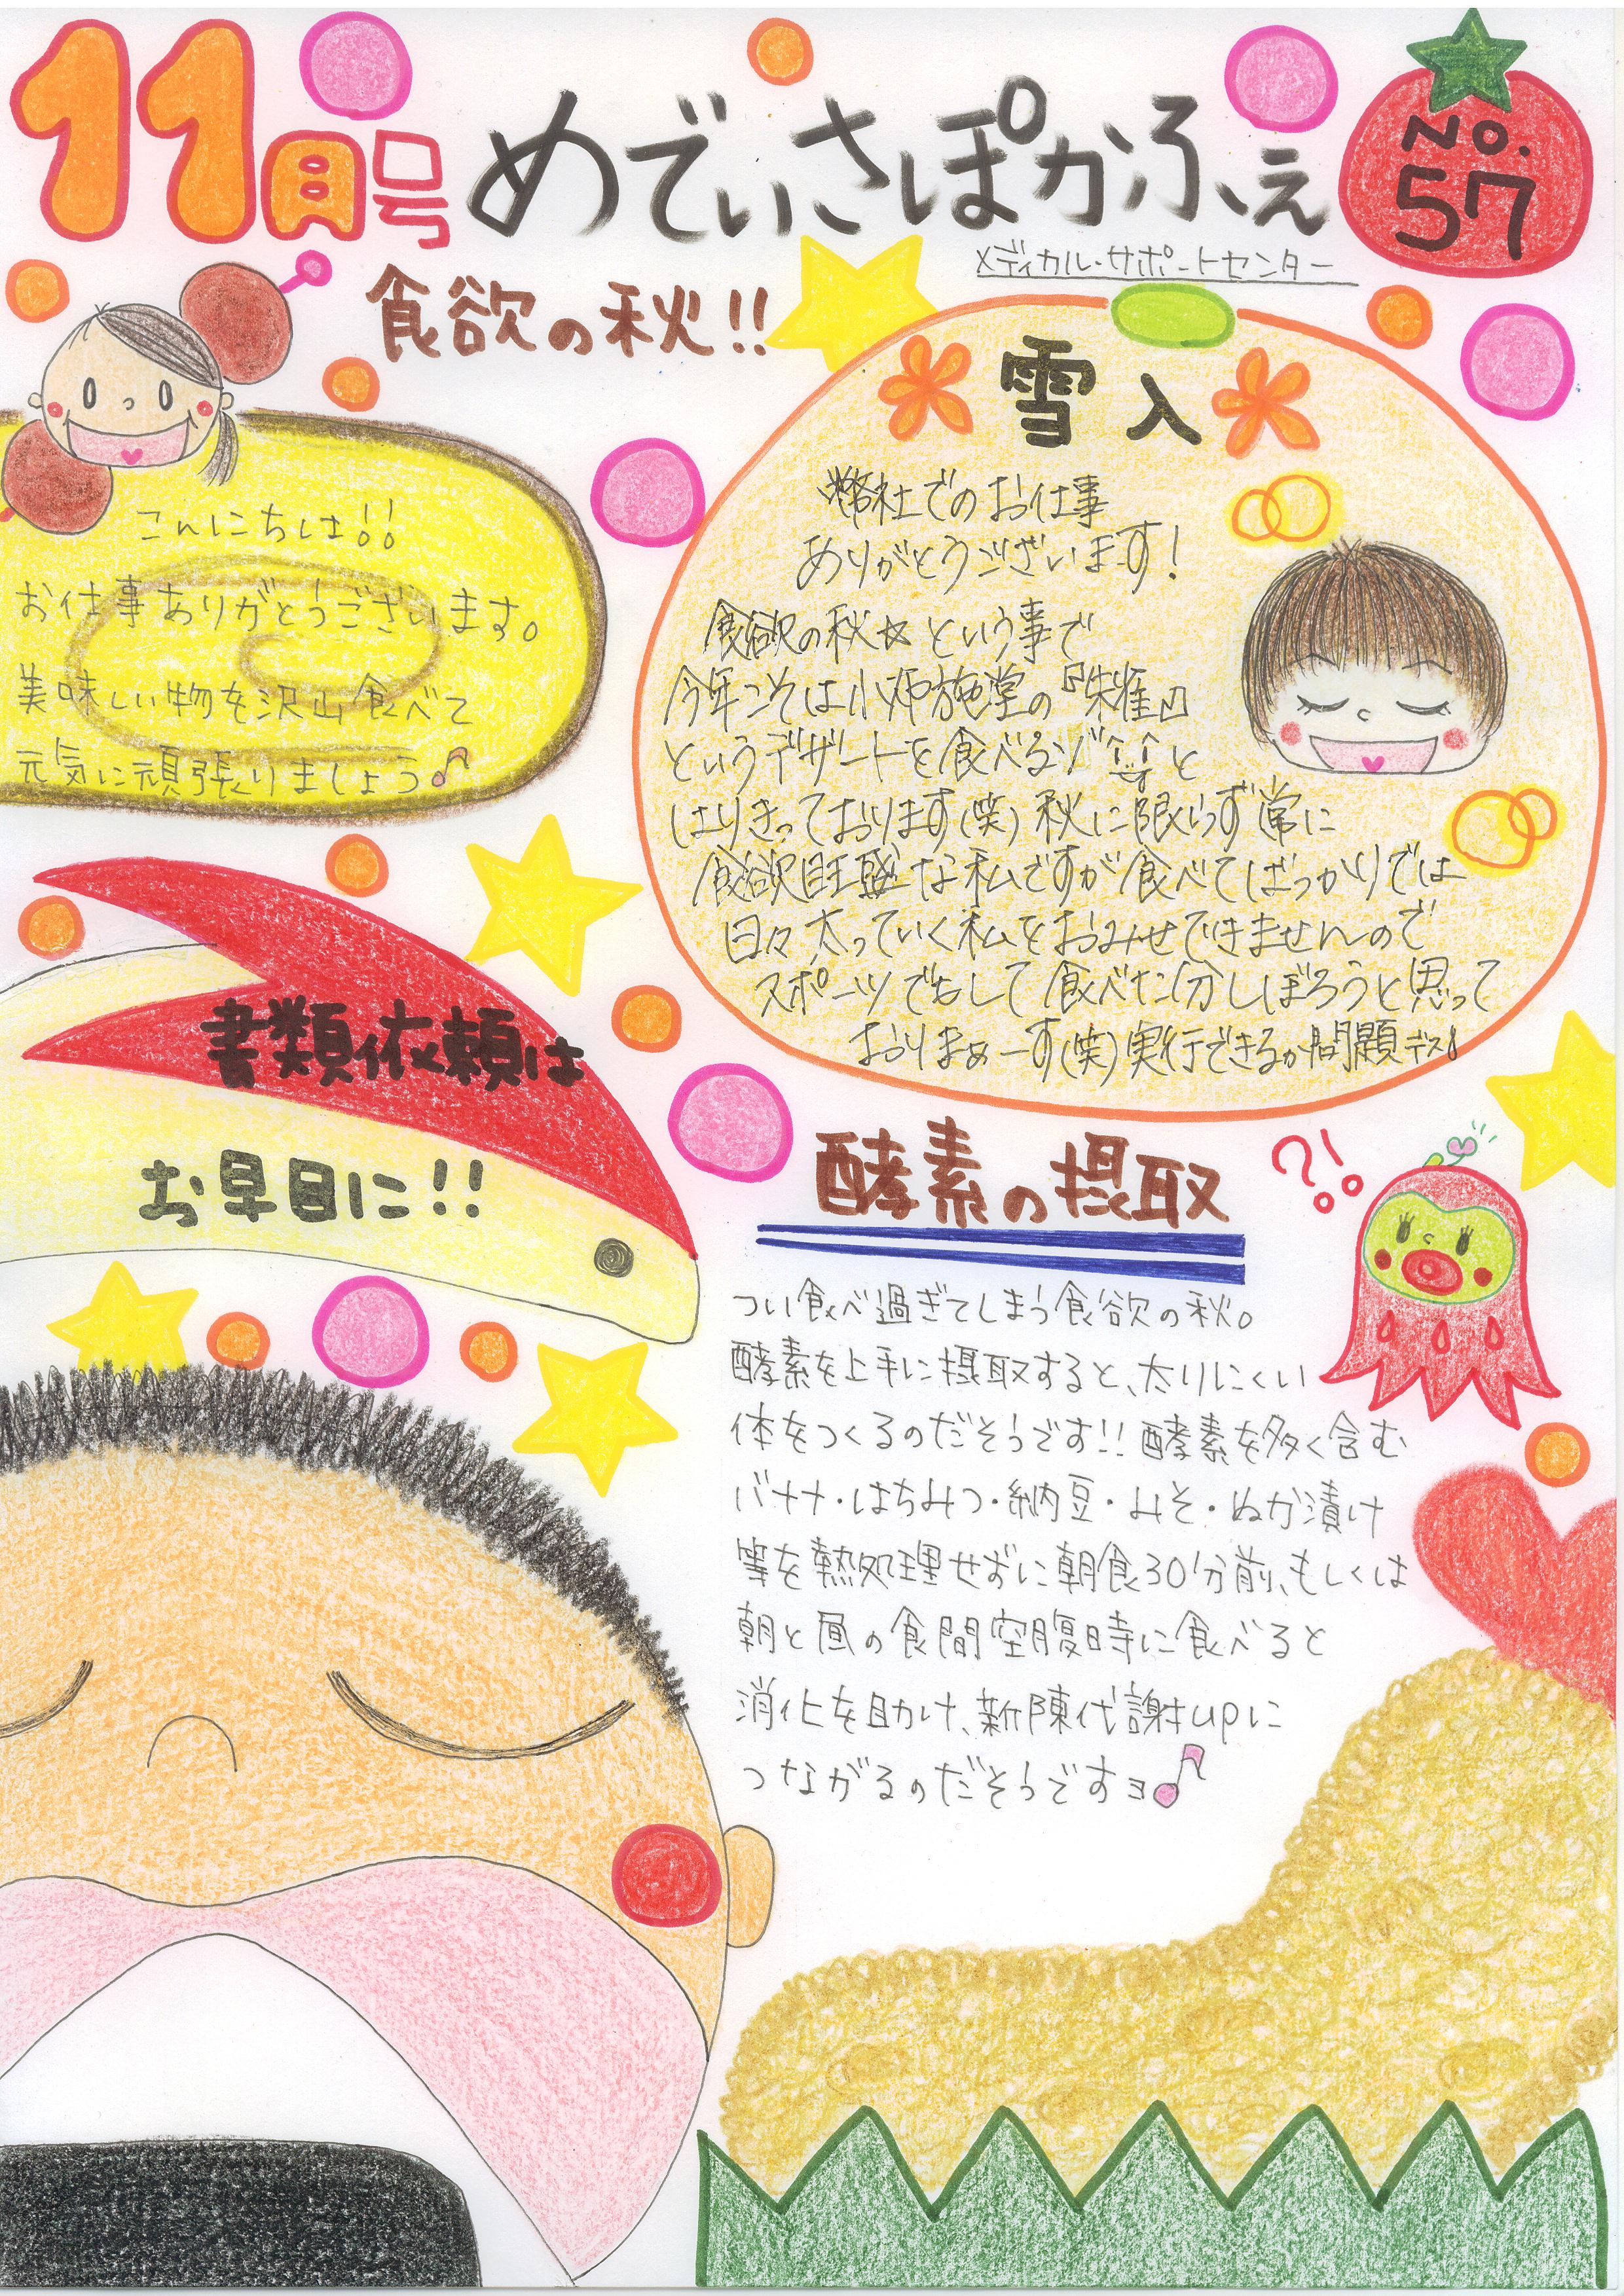 11月号
めでぃさぽかふぇ
No.
57
メディカル・サポートセンター
食欲の秋!!
こんにちは!!
お仕事ありがとうございます。
美味しい物を沢山食べて
元気に頑張りましょう♪
雪入
弊社でのお仕事
ありがとうございます!
食欲の秋☆という事で
今年こそは小布施堂の『朱雀』
というデザートを食べるゾ と
はりきっております(笑)秋に限らず常に
食欲旺盛な私ですが食べてばっかりでは
日々太っていく私をおみせできませんので
スポーツでもして食べた分しぼろうと思って
おりまぁーす(笑)実行できるか問題デス!
書類依頼は
お早目に!!
酵素の摂取
?!
つい食べ過ぎてしまう食欲の秋。
酵素を上手に摂取すると、太りにくい
体をつくるのだそうです!!酵素を多く含む
バナナ・はちみつ・納豆・みそ・ぬか漬け
等を熱処理せずに朝食30分前、もしくは
朝と昼の食間空腹時に食べると
消化を助け、新陳代謝upに
つながるのだそうですヨ♪